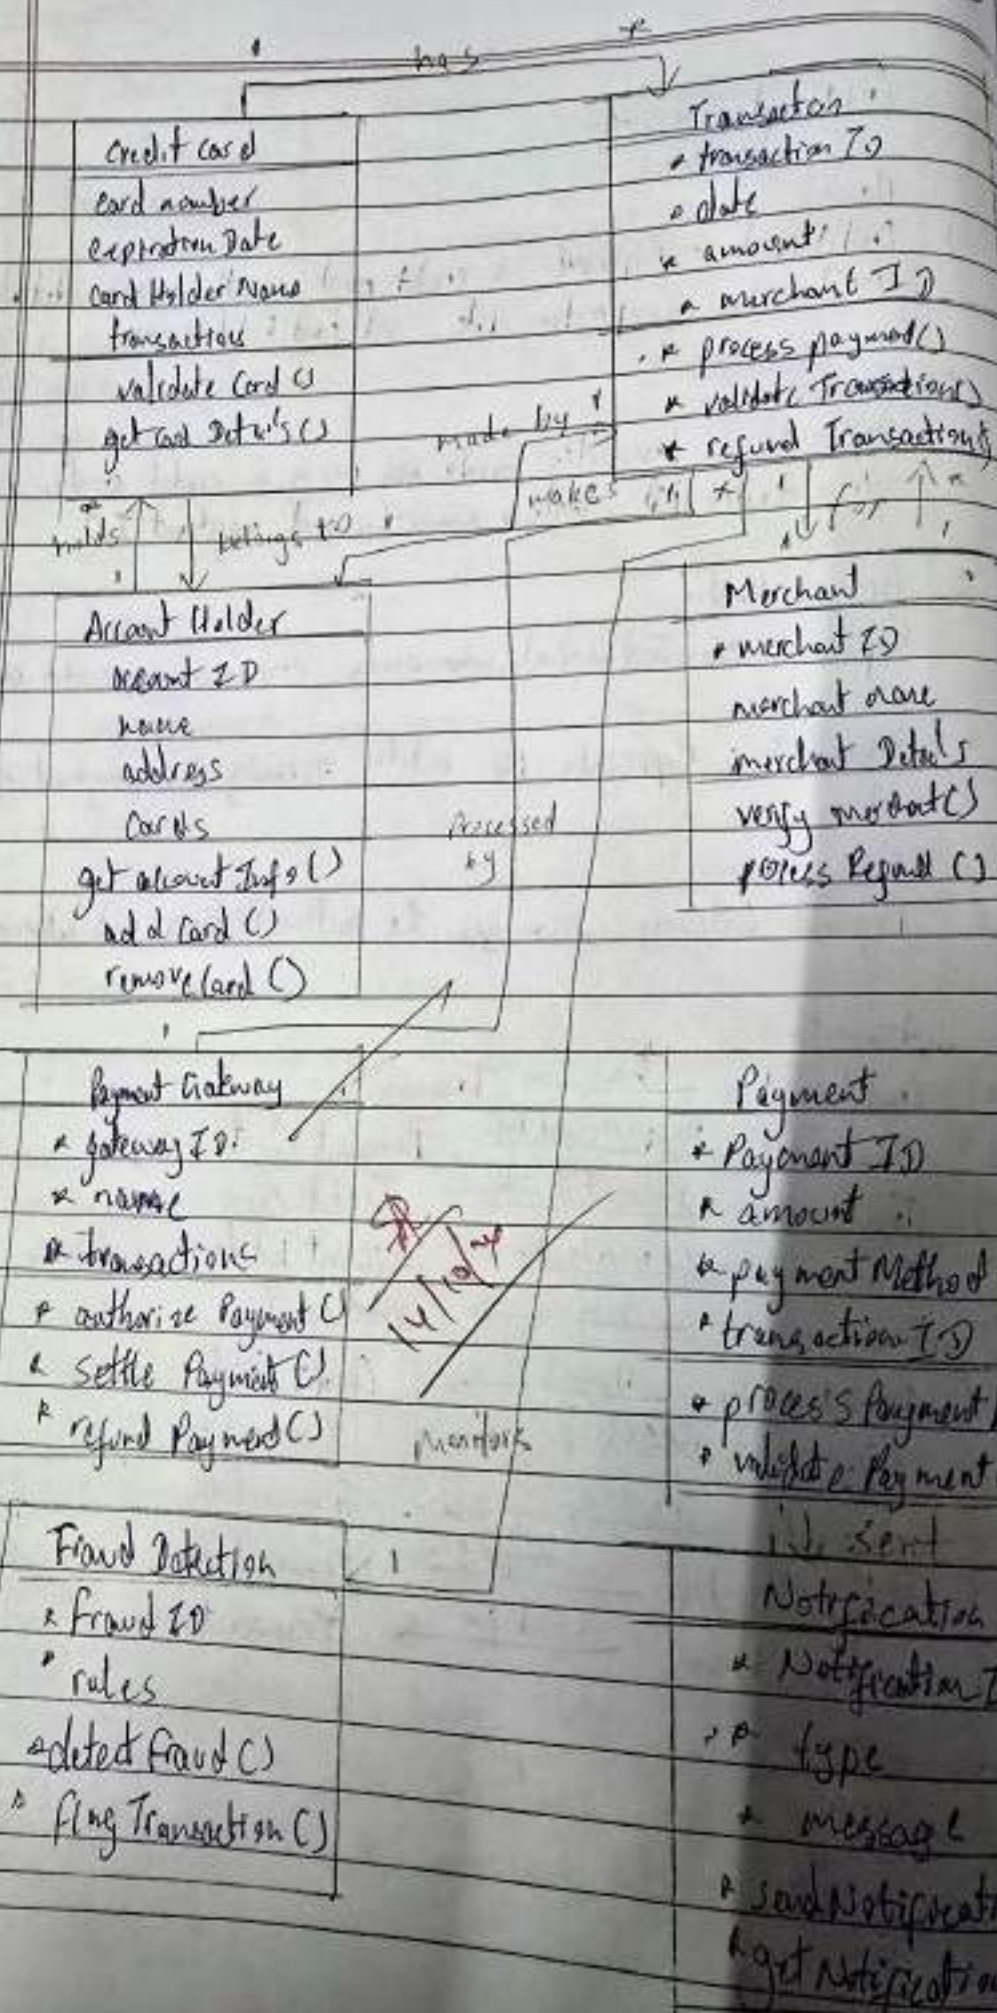 1
has
*
Credit Card
card number
expiration Date
Card Holder Name
transactions
validate Card ()
get Card Details ()
Transaction
* transaction ID
* date
* amount
* merchant ID
* process payment()
* validate Transaction()
* refund Transaction()
made by
makes
*
1
for
*
*
holds
1
belongs to
1
Account Holder
account ID
name
address
Cards
get account Info ()
add Card ()
remove Card ()
Merchant
* merchant ID
merchant name
merchant Details
verify merchant()
process Refund ()
Processed
by
1
Payment Gateway
* gateway ID
* name
* transactions
* authorize Payment ()
* settle Payment ()
* refund Payment ()
14/10/24
Payment
* Payment ID
* amount
* payment Method
* transaction ID
* process Payment
* validate Payment
monitors
1
sent
Fraud Detection
* fraud ID
* rules
* detect fraud ()
* flag Transaction ()
Notification
* Notification I
* type
* message
* send Notificati
* get Notification